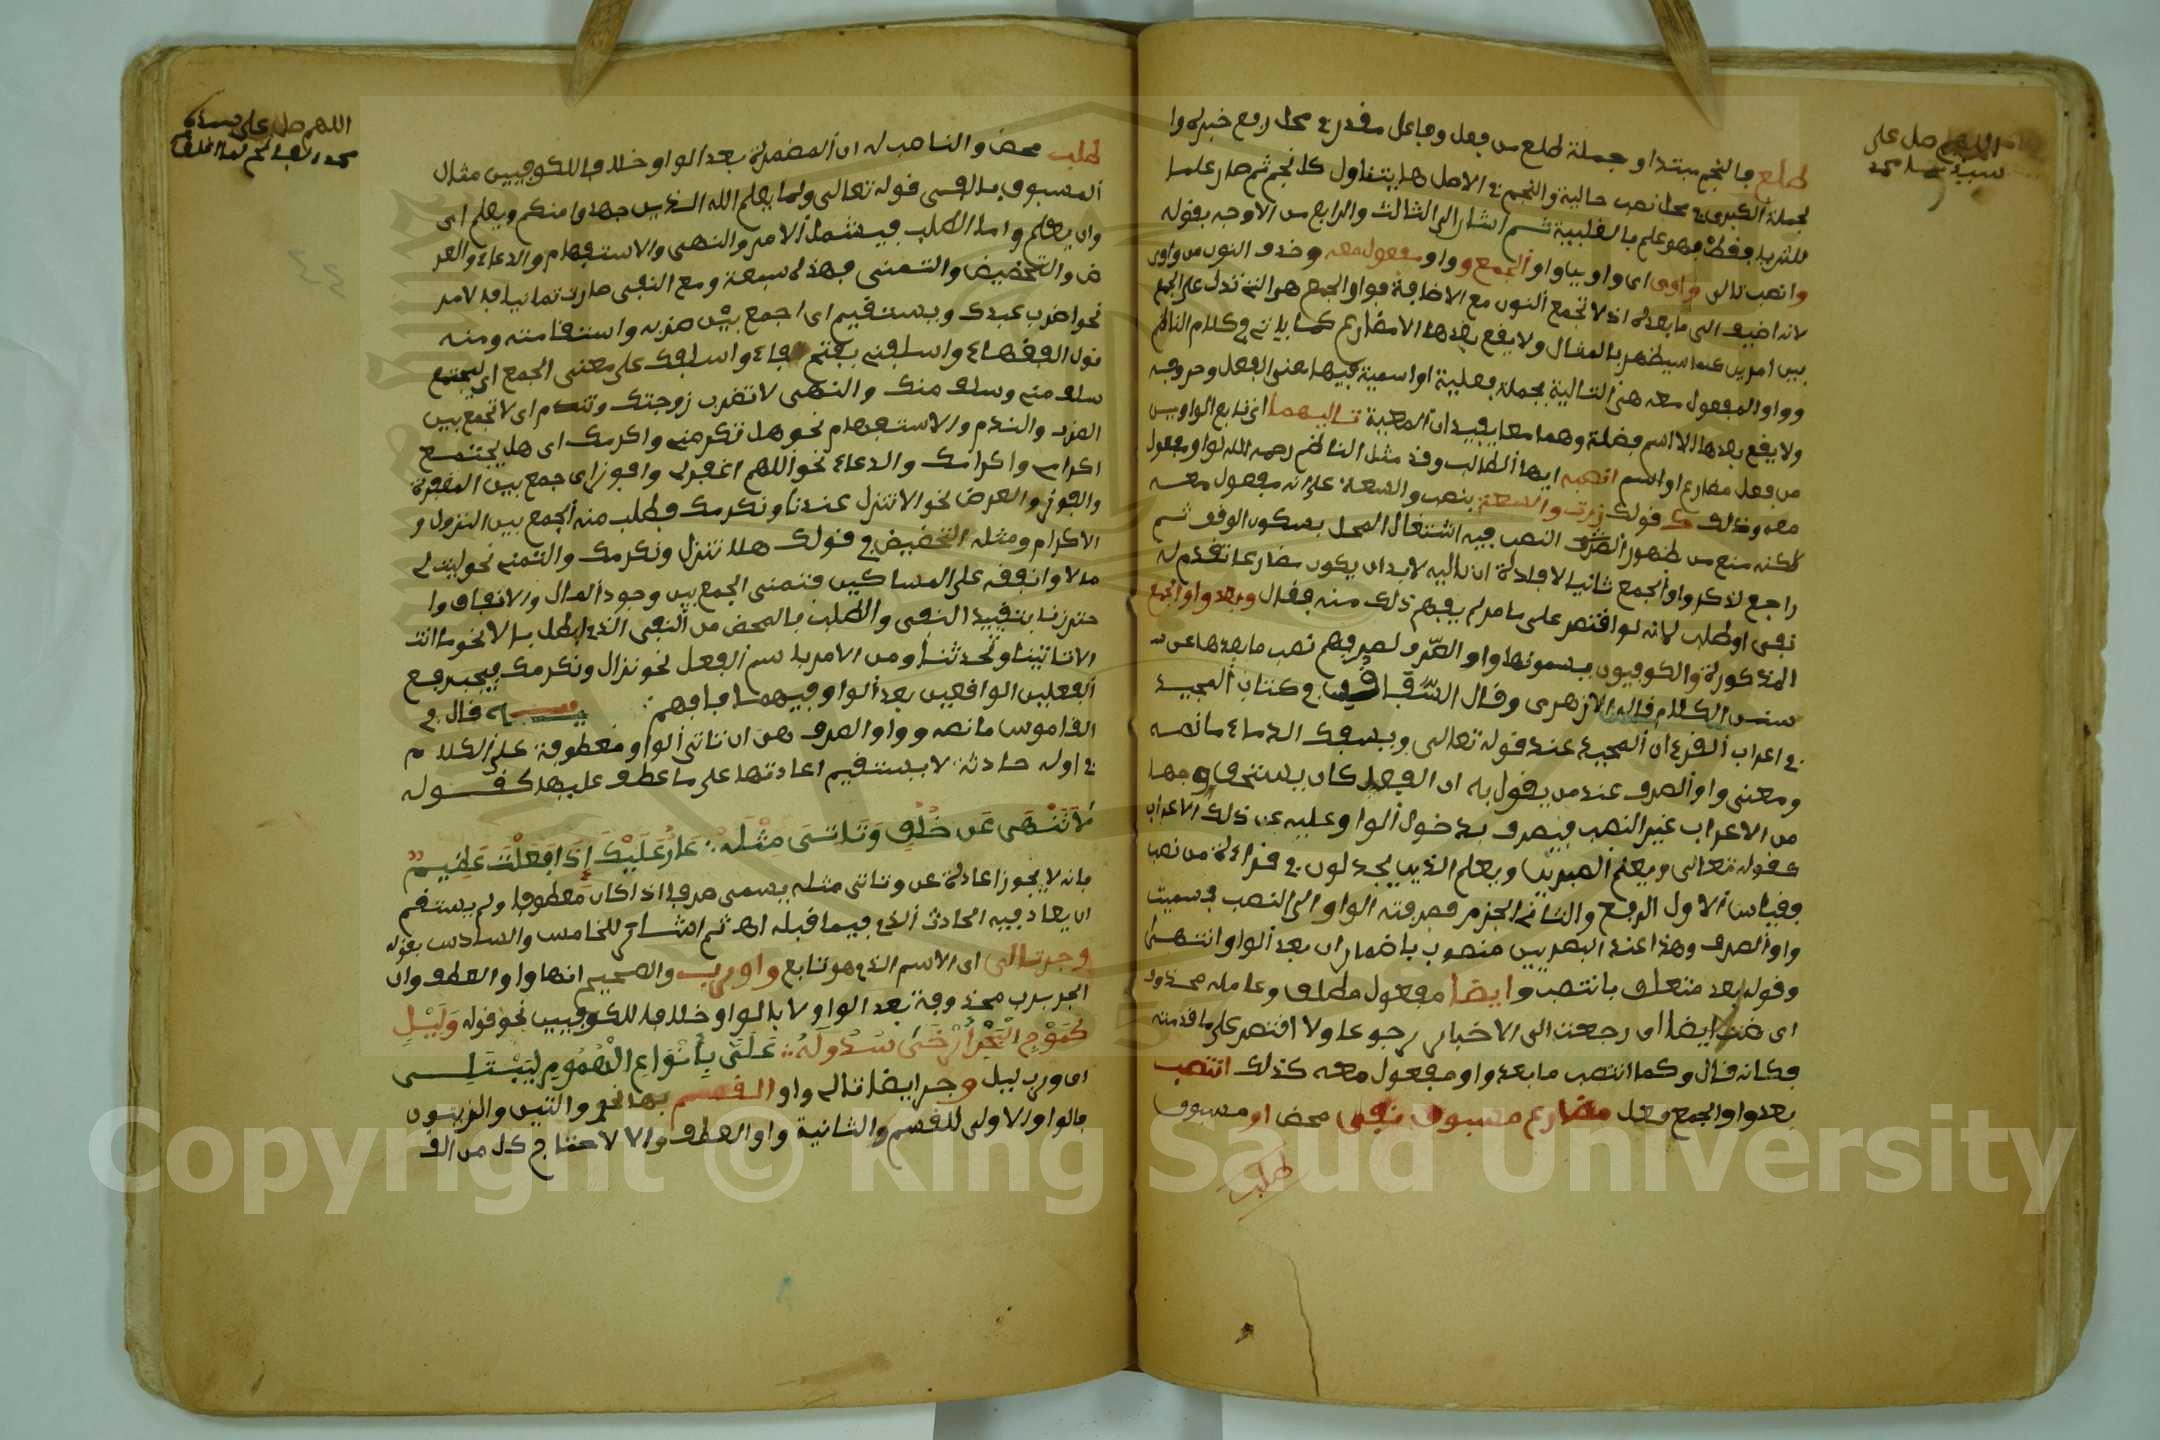 اللهم صل على
سيدنا محمد
طلع فالنجم مبتدا وجملة طلع من فعل وفاعل مقدر في محل رفع خبره وا
لجملة الكبرى في محل نصب حالية والنجم في الاصل لها يتناول كل نجم ثم صار علما
للثريا فقط فهو علم بالغلبية ثم اشار الى الثالث والرابع من الاوجه بقوله
وانصب تالي واوى اى واويا واو الجمع وواو مفعول معه وحذف النون من واوى
لانه اضيف الى ما بعده اذ لا تجمع النون مع الاضافة فواو الجمع هي التي تدل على الجمع
بين امرين كما سيظهر بالمثال ولا يقع بعدها الا مضارع كما ياتي في كلام الناظم
وواو المفعول معه هي التالية لجملة فعلية او اسمية فيها معنى الفعل وحروفه
ولا يقع بعدها الا اسم فضلة وهما معا يفيدان المعية تاليهما اى تابع الواوين
من فعل مضارع او اسم انصبه ايها الطالب وقد مثل الناظم رحمه الله لواو مفعول
معه وذلك كقولك زرت والسعة بنصب والسعة على انه مفعول معه
لكنه منع من ظهور النصب فيه اشتغال المحل بسكون الوقف ثم
راجع لذكر واو الجمع ثانيا لافادة ان تاليه لا بد ان يكون مضارعا تقدم له
نفى او طلب لانه لو اقتصر على ما مر لم يفهم ذلك منه فقال وبعد واو الجمع
المذكورة والكوفيون يسمونها واو الصرف لصرفهم نصب ما بعدها عن
سنن الكلام قاله الازهرى وقال السفاقسي في كتاب المجيد
في اعراب القرءان المجيد عند قوله تعالى ويسفك الدماء ما نصه
ومعنى واو الصرف عند من يقول به ان الفعل كان يستحق وجها
من الاعراب غير النصب فيصرف بدخول الواو عليه عن ذلك الاعراب
كقوله تعالى ويعلم الصبرين ويعلم الذين يجدلون في قراءة من نصب
فقياس الاول الرفع والثاني الجزم فصرفته الواو الى النصب فسميت
واو الصرف وهذا عند البصريين منصوب باضمار ان بعد الواو انتهى
وقوله بعد متعلق بانتصب وايضا مفعول مطلق وعامله محذوف
اى ايضا اى رجعت الى الاخبار رجوعا ولا اقتصر على ما قدمته
فكانه قال وكما انتصب ما بعد واو مفعول معه كذلك انتصب
بعد واو الجمع فعل مضارع مسبوق نفى محض او مسبوق
طلب
اللهم صل على سيدنا
محمد الفاتح لما اغلق
طلب محض والناصب له ان المضمرة بعد الواو خلافا للكوفيين مثال
المسبوق بالنفى قوله تعالى ولما يعلم الله الذين جهدوا منكم ويعلم اى
وان يعلم واما الطلب فيشمل الامر والنهى والاستفهام والدعاء والعر
ض والتحضيض والتمنى فهذه سبعة ومع النفى صارت ثمانيا فالامر
نحو اضرب عبدك ويستقيم اى اجمع بين ضربه واستقامته ومنه
قول الفقهاء واسلفني بفتح الفاء واسلفك على معنى الجمع اى ليجتمع
سلف منه وسلف منك والنهى لا تضرب زوجتك وتندم اى لا تجمع بين
الضرب والندم والاستفهام نحو هل تكرمني واكرمك اى هل يجتمع
اكرامي واكرامك والدعاء نحو اللهم اغفر لي وافوز اى جمع بين المغفرة
والفوز والعرض نحو الا تنزل عندنا ونكرمك فطلب منه الجمع بين النزول و
الاكرام ومثله التحضيض في قولك هلا تنزل ونكرمك والتمني نحو ليت لي
مالا وانفقه على المساكين فتمنى الجمع بين وجود المال والانفاق وا
حترزنا بتقييد النفى والطلب بالمحض من النفى الذي ابطل بالا نحو ما انت
الا تاتينا وتحدثنا ومن الامر باسم الفعل نحو نزال ونكرمك فيجب رفع
الفعلين الواقعين بعد الواو فيهما فافهم تنبيه قال في
القاموس ما نصه وواو الصرف هي ان تاتي الواو معطوفة على الكلام
في اوله حادثة لا يستقيم اعادتها على ما عطف عليها كقوله
لا تنهى عن خلق وتاتى مثله عار عليك اذا فعلت عظيم
فانه لا يجوز اعادة عن وتاتي مثله يسمى صرفا اذا كان معطوفا ولم يستقم
ان يعاد فيه الحادث الذي فيما قبله اهـ ثم اشار للخامس والسادس بقوله
وجر تالى اى الاسم الذي هو تابع واو رب والصحيح انها واو العطف وان
الجر برب محذوفة بعد الواو لا بالواو خلافا للكوفيين نحو قوله وليل
كموج البحر ارخى سدوله على بانواع الهموم ليبتلى
اى ورب ليل وجر ايضا تالى واو القسم بها نحو والتين والزيتون
فالواو الاولى للقسم والثانية واو العطف والا لاحتاج كل من الق
Copyright © King Saud University